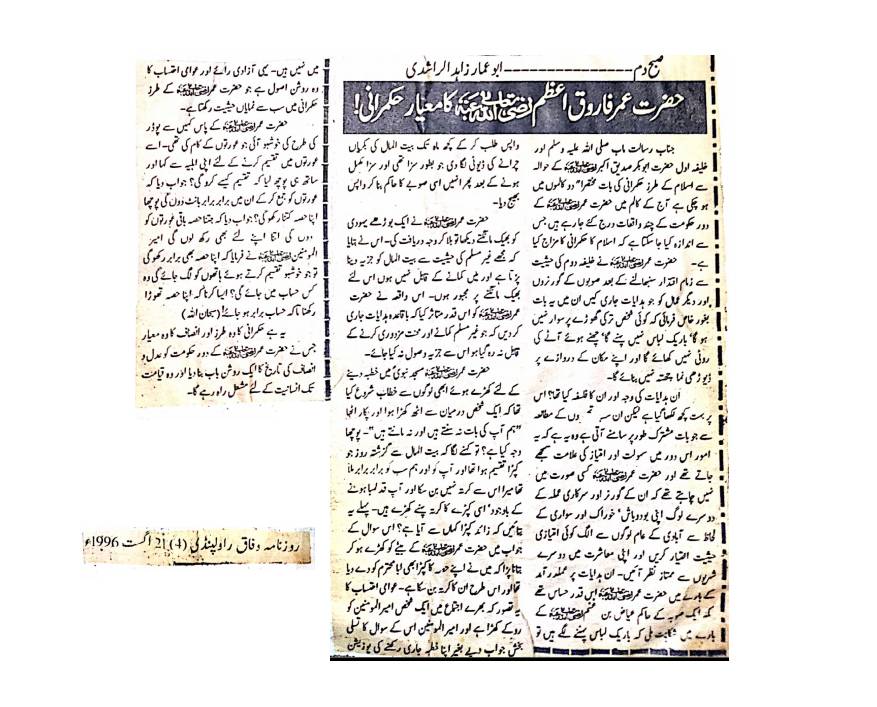 صبح دم ــــــــــــــ ابو عمار زاہد الراشدی
حضرت عمر فاروق اعظم رضی اللہ تعالیٰ عنہ کا معیار حکمرانی!
جناب رسالت ماب صلی اللہ علیہ وسلم اور
خلیفہ اول حضرت ابوبکر صدیق اکبر رضی اللہ تعالیٰ عنہ کے حوالہ
سے اسلام کے طرز حکمرانی کی بات مختصراً دو کالموں میں
ہو چکی ہے آج کے کالم میں حضرت عمر رضی اللہ تعالیٰ عنہ کے
دور حکومت کے چند واقعات درج کئے جا رہے ہیں جس
سے اندازہ کیا جا سکتا ہے کہ اسلام کا حکمرانی کا مزاج کیا
ہے۔ حضرت عمر رضی اللہ تعالیٰ عنہ نے خلیفہ دوم کی حیثیت
سے زمام اقتدار سنبھالنے کے بعد صوبوں کے گورنروں
اور دیگر عمال کو جو ہدایات جاری کیں ان میں یہ بات
بطور خاص فرمائی کہ کوئی شخص ترکی گھوڑے پر سوار نہیں
ہو گا' باریک لباس نہیں پہنے گا' چھنے ہوئے آٹے کی
روٹی نہیں کھائے گا اور اپنے مکان کے دروازے پر
ڈیوڑھی نما پختہ نہیں بنائے گا۔
ان ہدایات کی وجہ اور ان کا فلسفہ کیا تھا؟ اس
پر بہت کچھ لکھا گیا ہے لیکن ان سب کے مطالعہ
سے جو بات مشترک طور پر سامنے آتی ہے وہ یہ ہے کہ یہ
امور اس دور میں سہولت اور امتیاز کی علامت سمجھے
جاتے تھے اور حضرت عمر رضی اللہ تعالیٰ عنہ کسی صورت میں
نہیں چاہتے تھے کہ ان کے گورنر اور سرکاری عملہ کے
دوسرے لوگ اپنی بودوباش' خوراک اور سواری کے
لحاظ سے آبادی کے عام لوگوں سے الگ کوئی امتیازی
حیثیت اختیار کریں اور اپنی معاشرت میں دوسرے
شہریوں سے ممتاز نظر آئیں۔ ان ہدایات پر عملدر آمد
کے بارے میں حضرت عمر رضی اللہ تعالیٰ عنہ اس قدر حساس تھے
کہ ایک صوبہ کے حاکم عیاض بن غنم رضی اللہ تعالیٰ عنہ کے
بارے میں شکایت ملی کہ باریک لباس پہننے لگے ہیں تو
واپس طلب کر کے کچھ ماہ تک بیت المال کی بکریاں
چرانے کی ڈیوٹی لگا دی جو بطور سزا تھی اور سزا مکمل
ہونے کے بعد پھر انہیں اسی صوبے کا حاکم بنا کر واپس
بھیج دیا۔
حضرت عمر رضی اللہ تعالیٰ عنہ نے ایک بوڑھے یہودی
کو بھیک مانگتے دیکھا تو بلا کر وجہ دریافت کی۔ اس نے بتایا
کہ مجھے غیر مسلم کی حیثیت سے بیت المال کو جزیہ دینا
پڑتا ہے اور میں کمانے کے قابل نہیں ہوں اس لئے
بھیک مانگنے پر مجبور ہوں۔ اس واقعہ نے حضرت
عمر رضی اللہ تعالیٰ عنہ کو اس قدر متاثر کیا کہ باقاعدہ ہدایات جاری
کر دیں کہ جو غیر مسلم کمانے اور محنت مزدوری کرنے کے
قابل نہ رہ گیا ہو اس سے جزیہ وصول نہ کیا جائے۔
حضرت عمر رضی اللہ تعالیٰ عنہ مسجد نبوی میں خطبہ دینے
کے لئے کھڑے ہوئے ابھی لوگوں سے خطاب شروع کیا
تھا کہ ایک شخص درمیان سے اٹھ کھڑا ہوا اور پکار اٹھا
"ہم آپ کی بات نہ سنتے ہیں اور نہ مانتے ہیں"۔ پوچھا
وجہ کیا ہے؟ تو کہنے لگا کہ بیت المال سے گزشتہ روز جو
کپڑا تقسیم ہوا تھا اور آپ کو اور ہم سب کو برابر برابر ملا
تھا میرا اس سے کرتہ نہیں بن سکا اور آپ قد لمبا ہونے
کے باوجود' اسی کپڑے کا کرتہ پہنے کھڑے ہیں۔ پہلے یہ
بتائیں کہ زائد کپڑا کہاں سے آیا ہے؟ اس سوال کے
جواب میں حضرت عمر رضی اللہ تعالیٰ عنہ کے بیٹے کو کھڑے ہو کر
بتانا پڑا کہ میں نے اپنے حصہ کا کپڑا بھی ابا محترم کو دے دیا
تھا اور اس طرح ان کا کرتہ بن سکا ہے۔ عوامی احتساب کا
یہ تصور کہ بھرے اجتماع میں ایک شخص امیر المومنین کو
روکے کھڑا ہے اور امیر المومنین اس کے سوال کا تسلی
بخش جواب دیے بغیر اپنا خطبہ جاری رکھنے کی پوزیشن
میں نہیں ہیں۔ یہی آزادی رائے اور عوامی احتساب کا
وہ روشن اصول ہے جو حضرت عمر رضی اللہ تعالیٰ عنہ کے طرز
حکمرانی میں سب سے نمایاں حیثیت رکھتا ہے۔
حضرت عمر رضی اللہ تعالیٰ عنہ کے پاس کہیں سے پوڈر
کی طرح کی خوشبو آئی جو عورتوں کے کام کی تھی۔ اسے
عورتوں میں تقسیم کرنے کے لئے اپنی اہلیہ سے کہا اور
ساتھ ہی پوچھ لیا کہ تقسیم کیسے کرو گی؟ جواب دیا کہ
عورتوں کو جمع کر کے ان میں برابر برابر بانٹ دوں گی پوچھا
اپنا حصہ کتنا رکھو گی؟ جواب دیا کہ جتنا حصہ باقی عورتوں کو
دوں گی اتنا اپنے لئے بھی رکھ لوں گی امیر
المومنین رضی اللہ تعالیٰ عنہ نے فرمایا کہ اپنا حصہ بھی برابر رکھو گی
تو جو خوشبو تقسیم کرتے ہوئے ہاتھوں کو لگ جائے گی وہ
کس حساب میں جائے گی؟ ایسا کرنا کہ اپنا حصہ تھوڑا
رکھنا تاکہ حساب برابر ہو جائے! (سبحان اللہ)
یہ ہے حکمرانی کا وہ طرز اور انصاف کا وہ معیار
جس نے حضرت عمر رضی اللہ تعالیٰ عنہ کے دور حکومت کو عدل و
انصاف کی تاریخ کا ایک روشن باب بنا دیا اور وہ قیامت
تک انسانیت کے لئے مشعل راہ رہے گا۔
روزنامہ وفاق راولپنڈی (4) 21 اگست 1996ء